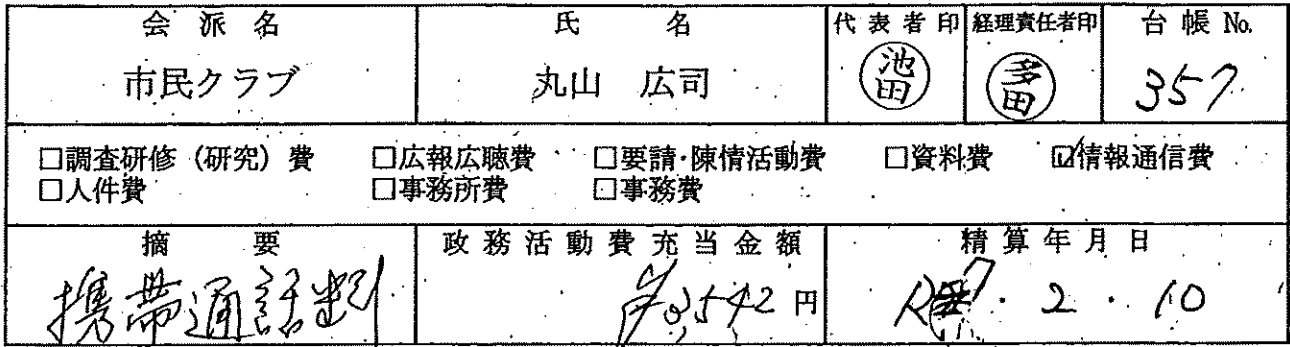 会派名 氏名 代表者印 経理責任者印 台帳No.
市民クラブ 丸山 広司 池田 多田 357
□調査研修（研究）費 □広報広聴費 □要請・陳情活動費 □資料費 ☑情報通信費
□人件費 □事務所費 □事務費
摘要 政務活動費充当金額 精算年月日
携帯通話料 3,542円 R7・2・10